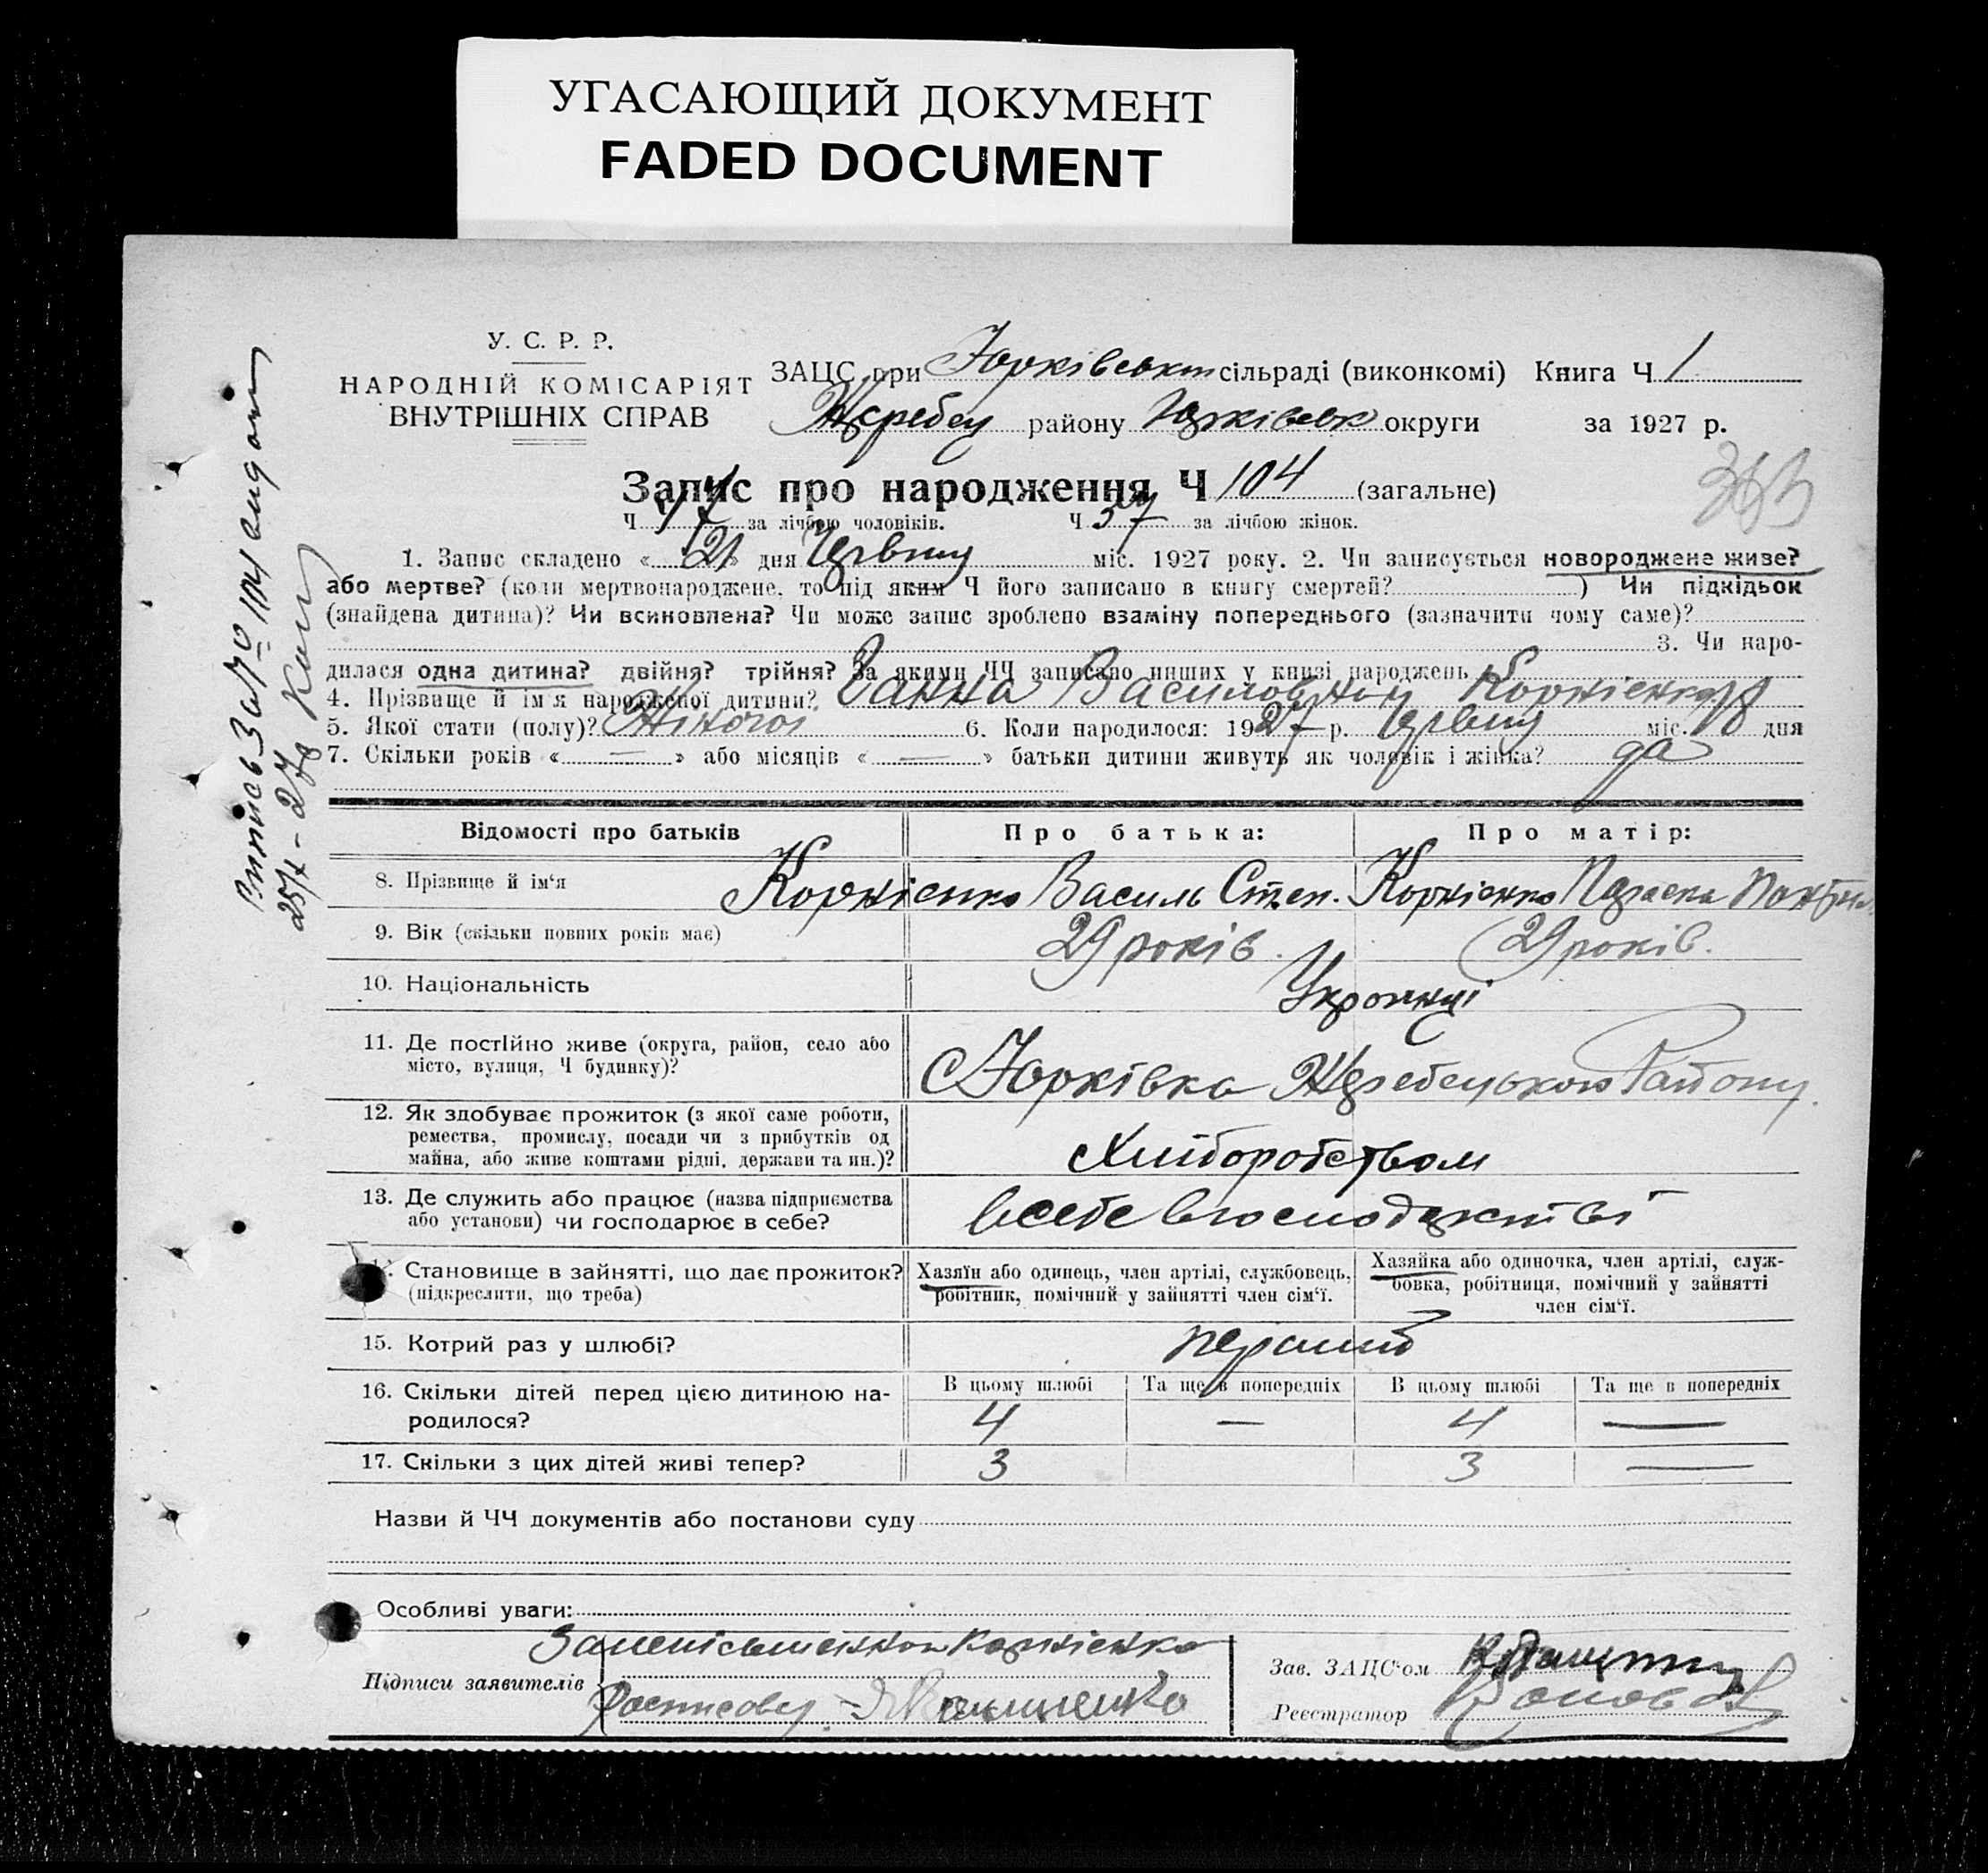 УГАСАЮЩИЙ ДОКУМЕНТ
FADED DOCUMENT
У. С. Р. Р.
НАРОДНІЙ КОМІСАРІЯТ
ВНУТРІШНІХ СПРАВ
ЗАЦС при Юрківськ сільраді (виконкомі) Книга Ч 1
Жеребец району округи за 1927 р.
Запис про народження Ч 104 (загальне)
Ч 47 за лічбою чоловіків. Ч 57 за лічбою жінок.
1. Запис складено « 21 » дня Червня міс. 1927 року. 2. Чи записується новороджене живе?
або мертве? (коли мертвонароджене, то під яким Ч його записано в книгу смертей? ) Чи підкідьок
(знайдена дитина)? Чи всиновлена? Чи може запис зроблено взаміну попереднього (зазначити чому саме)?
3. Чи наро-
дилася одна дитина? двійня? трійня? За якими ЧЧ записано инших у книзі народжень
4. Прізвище й ім'я народженої дитини? Ганна Василовна Корнієнко
5. Якої стати (полу)? Жіночої 6. Коли народилося: 1927 р. Червня міс. 18 дня
7. Скільки років « — » або місяців « — » батьки дитини живуть як чоловік і жінка? да
Відомості про батьків Про батька: Про матір:
8. Прізвище й ім'я Корнієнко Василь Степ. Корнієнко Параска
9. Вік (скільки повних років має) 29 років. 29 років.
10. Національність Українці
11. Де постійно живе (округа, район, село або
місто, вулиця, Ч будинку)?
С Юрківка Жеребецького Району.
12. Як здобуває прожиток (з якої саме роботи,
ремества, промислу, посади чи з прибутків од
майна, або живе коштами рідні, держави та ин.)?
Хліборобством
13. Де служить або працює (назва підприємства
або установи) чи господарює в себе?
всебе вгосподарстві
Становище в зайнятті, що дає прожиток?
(підкреслити, що треба)
Хазяїн або одинець, член артілі, службовець,
робітник, помічний у зайнятті член сім'ї.
Хазяйка або одиночка, член артілі, служ-
бовка, робітниця, помічний у зайнятті
член сім'ї.
15. Котрий раз у шлюбі? перший
16. Скільки дітей перед цією дитиною на-
родилося?
В цьому шлюбі Та ще в попередніх В цьому шлюбі Та ще в попередніх
4 — 4 —
17. Скільки з цих дітей живі тепер? 3 3 —
Назви й ЧЧ документів або постанови суду
Особливі уваги:
Корнієнко
Підписи заявителів
Зав. ЗАЦС'ом
Реєстратор